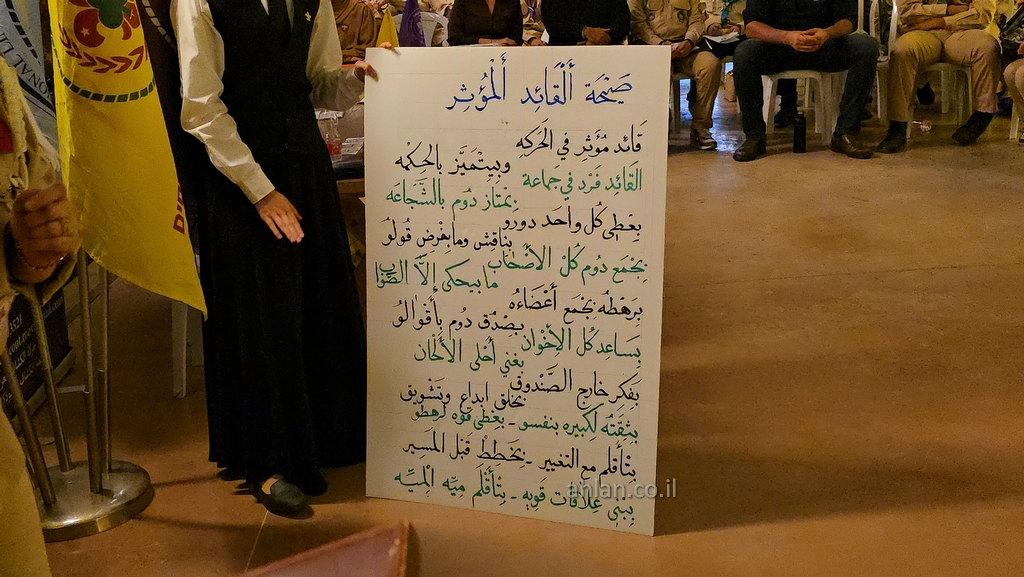 صَيْحَة أَلْقَائِد أَلْمُؤثِر
قَائِد مُؤَثِر في الحَرَكِه
وبيتْمَيَّز بالحِكْمه
القَائِد فَرْد في جماعة
بمتاز دُوم بالشَّجاعَه
بِعْطي كُل واحَد دورو
بناقِش وما بِفْرِض قُولُو
بِجْمَع دوم كُلْ الأَصْحاب
ما بيحكى إلاَّ الصَّوَاب
بِرَهْطُه بِجْمَع أَعْضَاءُه
بِصْدُق دوم بِأَقْوالُو
بِسَاعِد كُل الإخْوان
بغني أَحْلى الأَلْحان
بِفَكِر خارِج الصَّنْدوق
بخلق ابداع وتَشْويق
بِثِقْتُه لِكْبيره بنفسو - بِعْطي قوه لرهطو
بِتْأَقلم مع التغيير - بخَطِطْ قَبْل المَسير
بِبْني عِلاقات قَوِيِه - بِتْأَقْلَم مِيِّه الْمِيِّه
ahlan.co.il
DIRE
3521